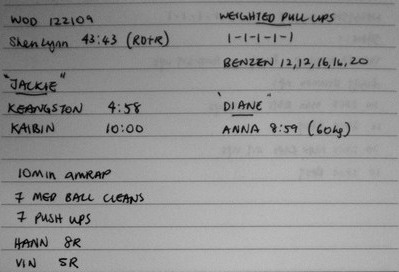 WOD 122109
ShenLynn 43:43 (RD+R)
"JACKIE"
KEANGSTON 4:58
KAIBIN 10:00
10min AMRAP
7 MED BALL CLEANS
7 PUSH UPS
HANN 8R
VIN 5R
WEIGHTED PULL UPS
1-1-1-1-1
BENZEN 12,12,16,16,20
"DIANE"
ANNA 8:59 (60kg)